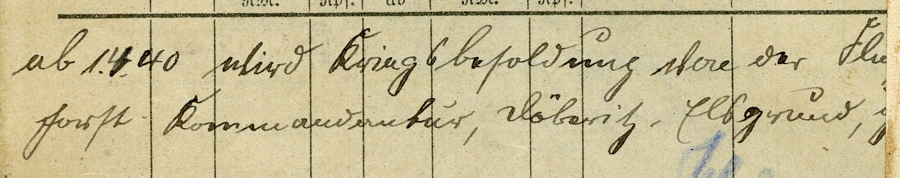 RM. Rpf. ab RM. Rpf.
ab 1.4.40 wird Kriegsbesoldung von der
forst Kommandantur, Döberitz-Elsgrund,